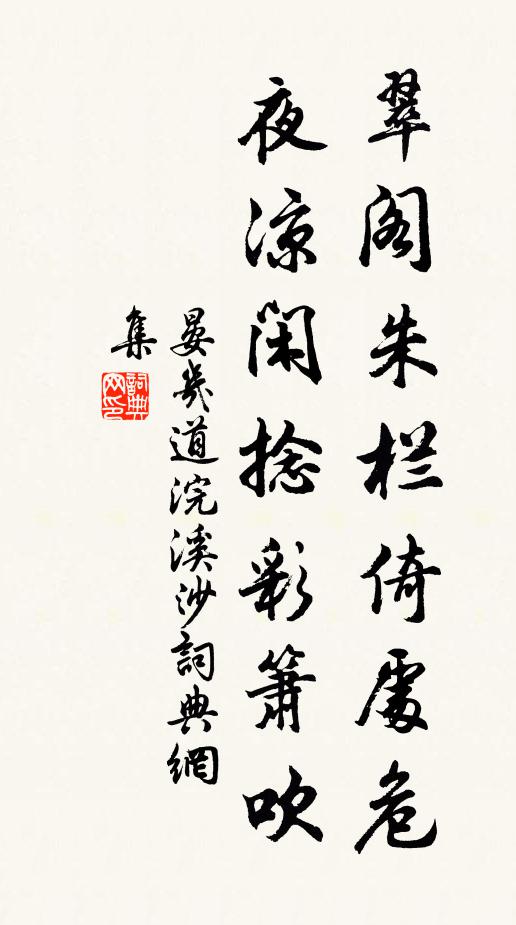 翠阁朱栏倚處危
夜凉闲捻彩箫吹
晏幾道浣溪沙詞典網
集
詞典
网印